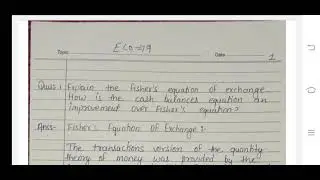 Topic ECO-419 Date 1
Ques:1 Explain the Fisher's equation of exchange.
How is the cash balances equation an
improvement over Fisher's equation?
Ans- Fisher's Equation Of Exchange:
The transactions version of the quantity
theory of money was provided by the